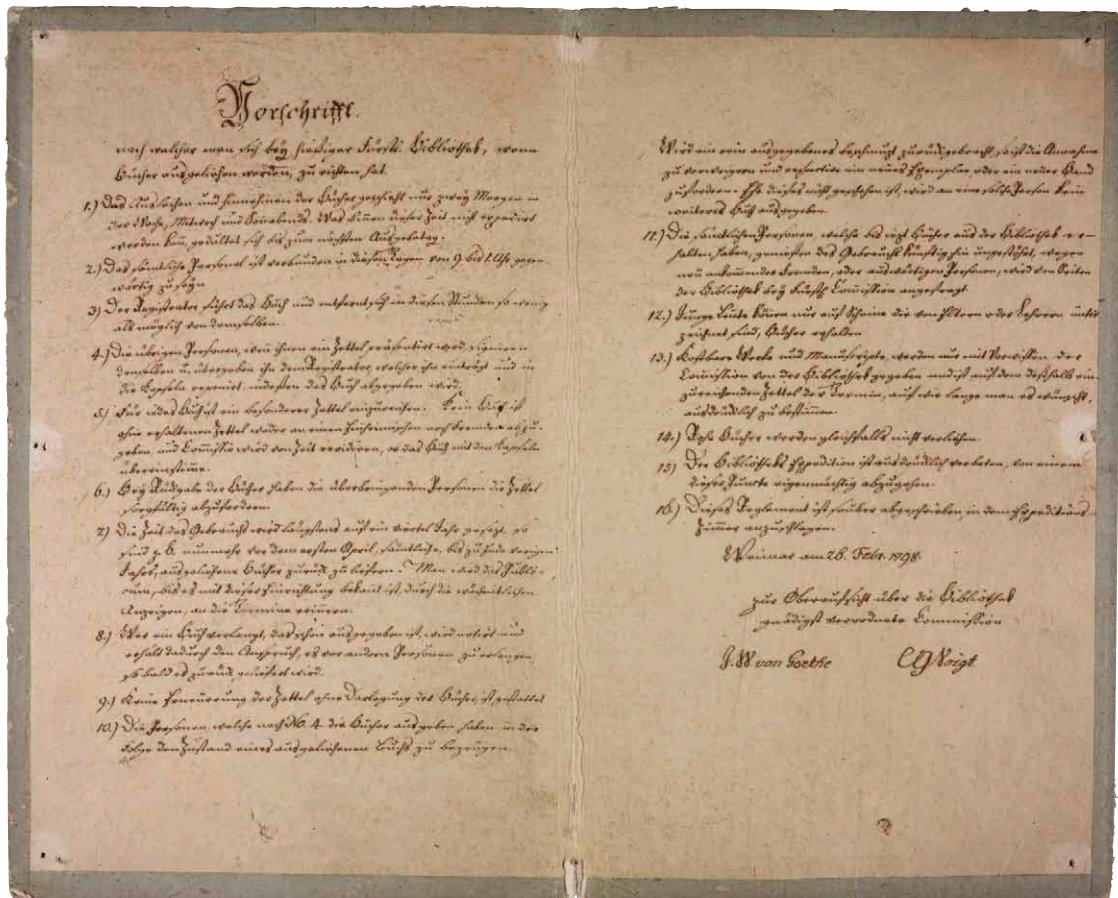 Vorschrifft.
nach welcher man sich bey hiesiger Fürstl. Bibliothek, wenn
Bücher ausgeliehen werden, zu richten hat.
1.) Das Aussuchen und hinnehmen der Bücher geschieht nur zwey Morgen in
der Woche, Mitwoch und Sonnabends. Was binnen dieser Zeit nicht expedirt
werden kan, gedultet sich bis zum nächsten Ausgebetag.
2.) Das sämtliche Personal ist verbunden in diesen Tagen von 9 bis 1 Uhr gegen
wärtig zu seyn
3.) Der Registrator führt das Buch und entfernt sich in diesen Stunden so wenig
als möglich von demselben.
4.) Die übrigen Personen, wenn ihnen ein Zettel präsentirt wird, signiren
denselben u. übergeben ihn dem Registrator, welcher ihn einträgt und in
die Kapseln reponirt, indessen das Buch abgegeben wird.
5.) Für jedes Buch ist ein besonderer Zettel einzureichen. Kein Buch ist
ohne erhaltenen Zettel weder an einen Einheimischen noch Fremden abzu-
geben, und Commissio wird von Zeit revidiren, ob das Buch mit den Kapseln
übereinstimme.
6.) Bey Rückgabe der Bücher haben die überbringenden Personen die Zettel
sorgfältig abzufordern.
7.) Die Zeit des Gebrauchs wird längstens auf ein viertel Jahr gesezt, so
sind z. B. nunmehr vor dem ersten April, sämtliche, bis zu Ende vorigen
Jahrs, ausgeliehene Bücher zurück zu liefern. Man wird das Publi-
cum, bis es mit dieser Einrichtung bekant ist, durch die wöchentlichen
Anzeigen, an die Termine erinnern.
8.) Wer ein Buch verlangt, das schon ausgegeben ist, wird notirt und
erhält dadurch den Anspruch, es vor andern Personen zu erlangen
so bald es zurück geliefert wird.
9.) Keine Erneuerung der Zettel ohne Darlegung der Bücher, ist gestattet
10.) Die Personen, welche nach No. 4. die Bücher ausgeben haben in der
Folge den Zustand eines ausgeliehenen Buchs zu bezeugen.
Wird ein rein ausgegebenes beschmuzt zurückgebracht, so ist die Annahme
zu verweigern und ein neues Exemplar oder ein neuer Band
zu fordern. Ehe dieses nicht geschehen ist, wird an eine solche Person kein
weiteres Buch ausgegeben.
11.) Die sämtlichen Personen, welche bis iezt Bücher aus der Bibliothek er-
halten haben, geniessen des Gebrauchs künftig hin ungestöhrt, wegen
neu ankommender Fremden, oder auswärtigen Personen, wird von Seiten
der Bibliothek bey Fürstl. Commission angefragt.
12.) Junge Leute können nur auf Scheine die von Eltern oder Lehrern unter
zeichnet sind, Bücher erhalten
13.) Kostbare Werke und Manuscripte, werden nur mit Vorwissen der
Commission von der Bibliothek gegeben und ist auf dem deshalb ein-
zureichenden Zettel der Termin, auf wie lange man es wünscht,
ausdrücklich zu bestimmen.
14.) Rohe Bücher werden gleichfalls nicht verliehen.
15.) Der Bibliotheks Expedition ist ausdrücklich verboten, von einem
dieser Puncte eigenmächtig abzugehen.
16.) Dieses Reglement ist sauber abgeschrieben, in dem Expeditions
Zimmer anzuschlagen.
Weimar am 26. Febr. 1798.
zur Oberaufsicht über die Bibliothek
gnädigst verordnete Commission
J. W von Goethe CGVoigt